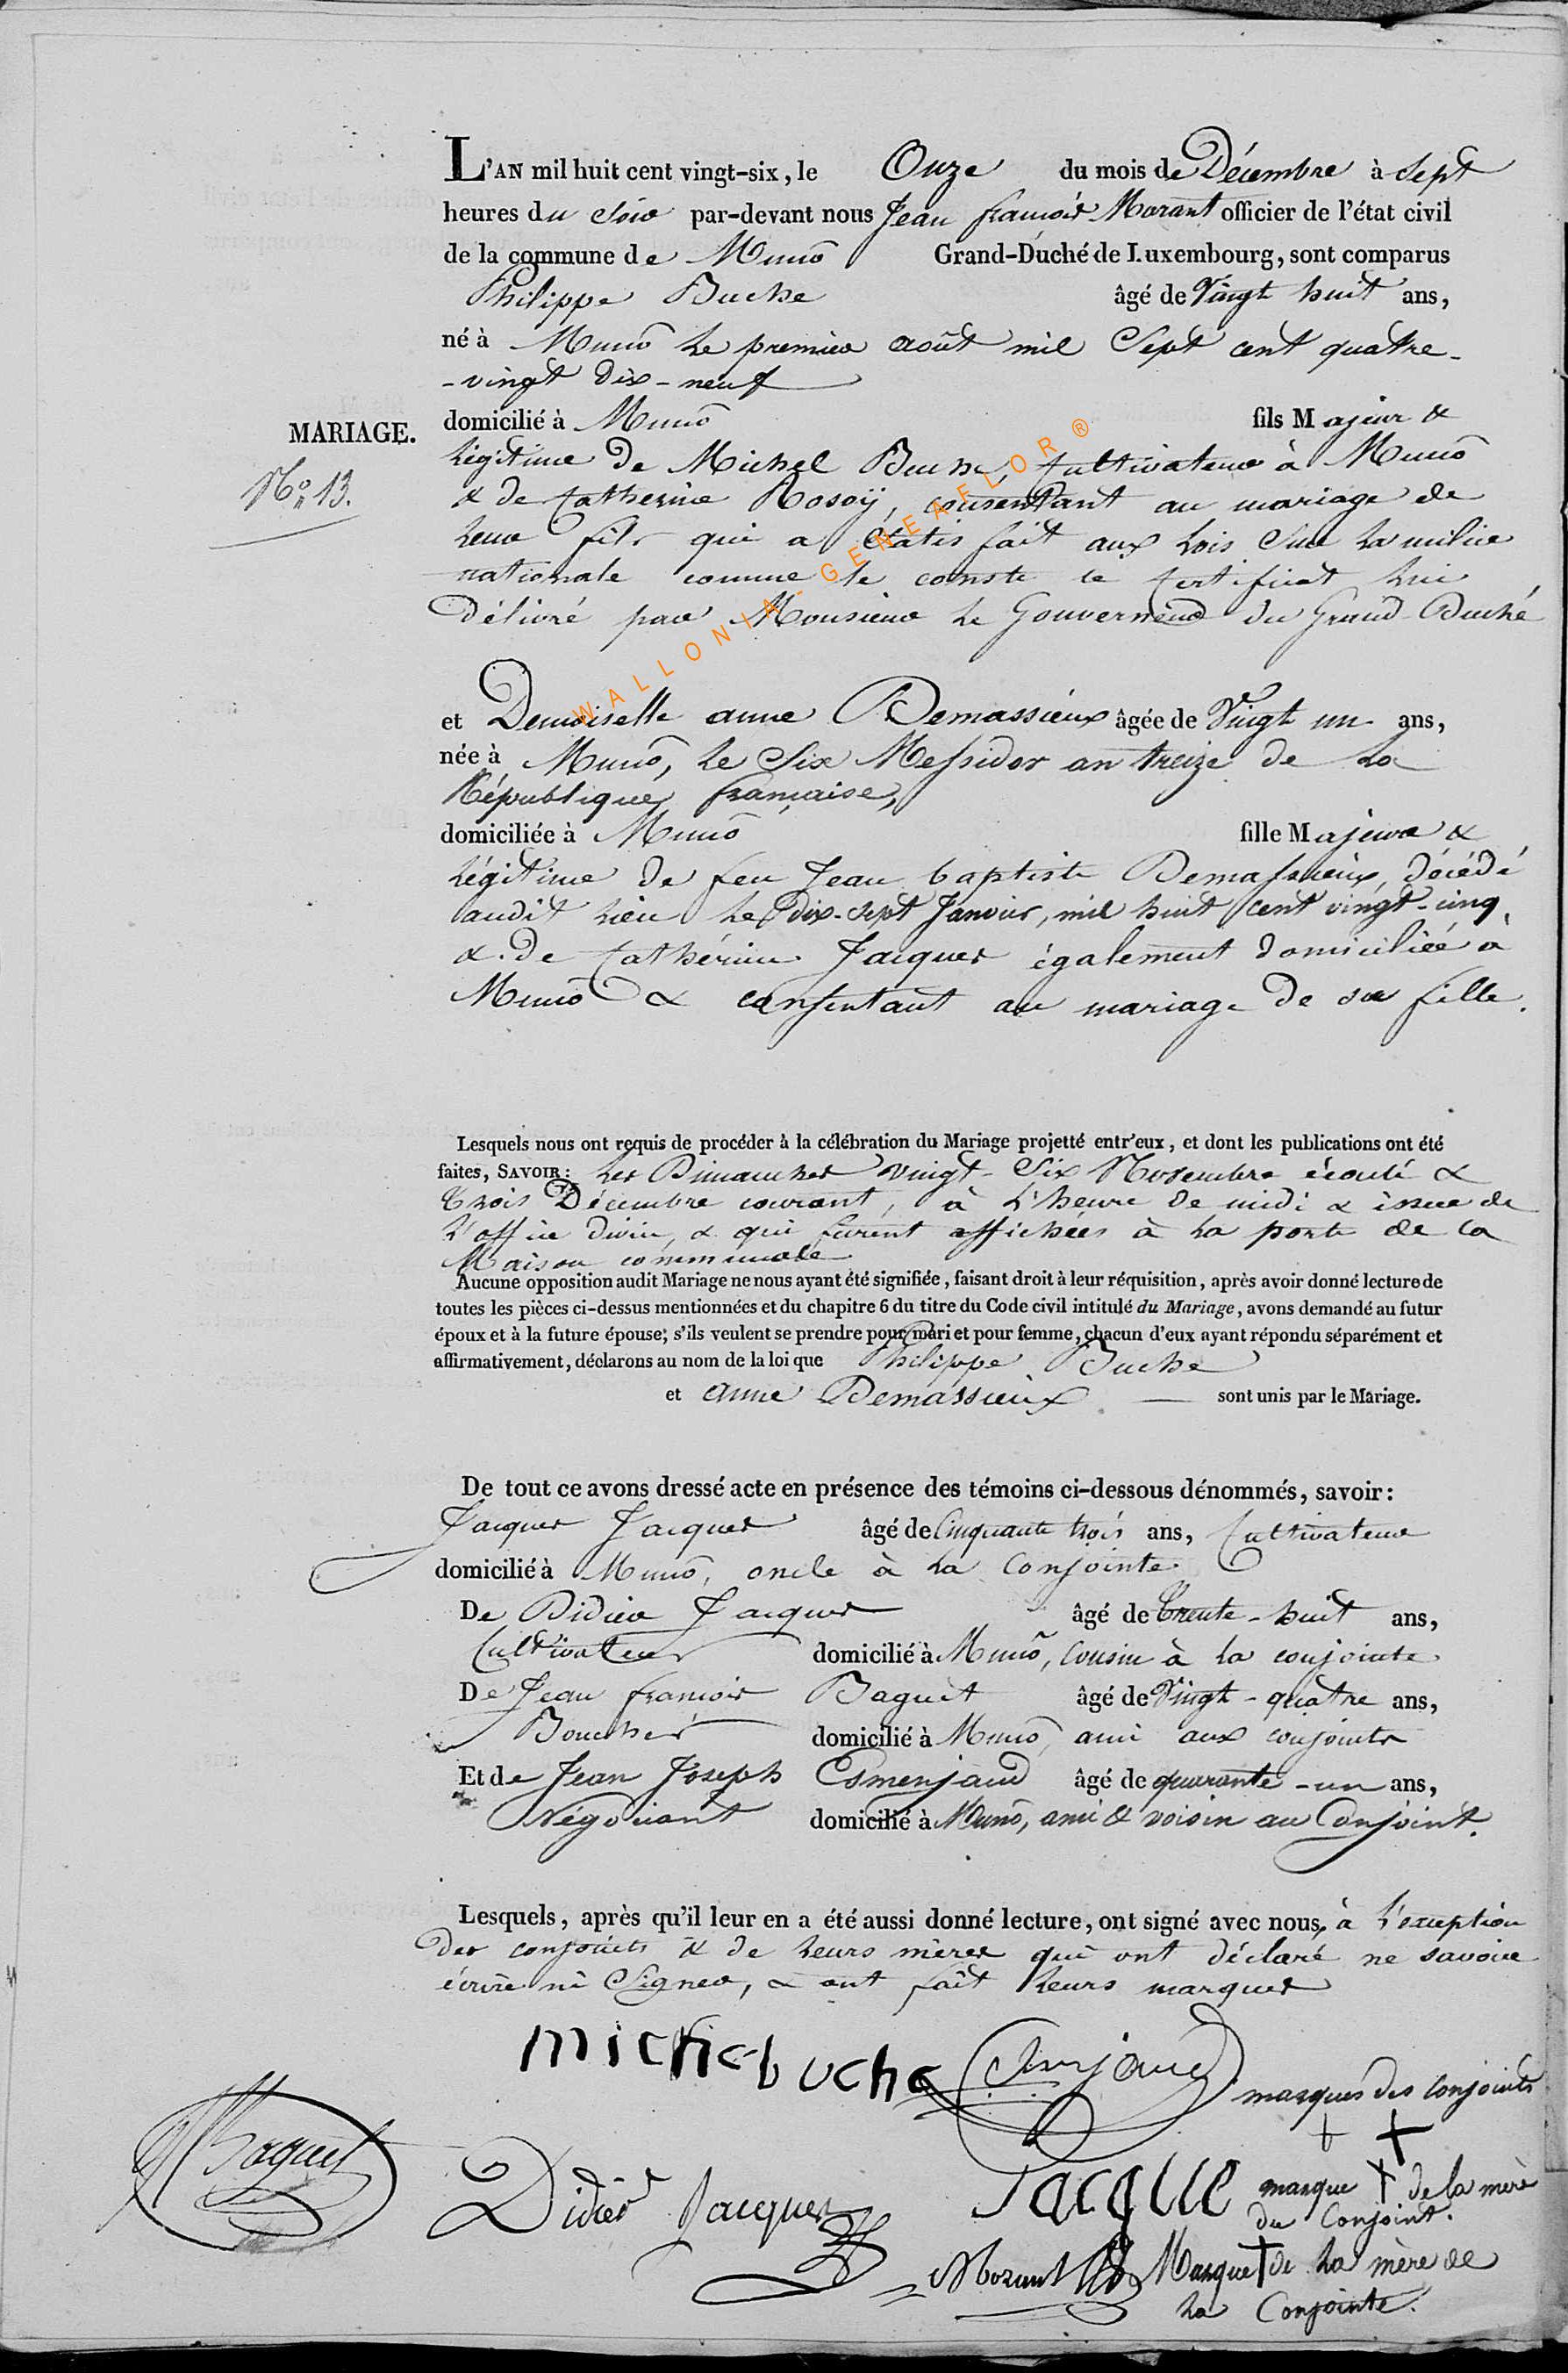 L'AN mil huit cent vingt-six, le Onze du mois de Décembre à Sept
heures du Soir par-devant nous Jean françois Morant officier de l'état civil
de la commune de Muno Grand-Duché de Luxembourg, sont comparus
Philippe Buche âgé de Vingt huit ans,
né à Muno le premier août mil Sept cent quatre-
-vingt dix-neuf
MARIAGE.
N° 13.
domicilié à Muno fils Majeur &
légitime de Michel Buche, Cultivateur à Muno
& de Catherine Rosoÿ, consentant au mariage de
leur fils qui a satisfait aux lois sur la milice
nationale comme le conste le Certificat lui
Délivré par Monsieur le Gouverneur du Grand-Duché
WALLONIA-GENEAFLOR®
et Demoiselle anne Demassieux âgée de Vingt un ans,
née à Muno, le Six Messidor an treize de la
République française,
domiciliée à Muno fille Majeure &
légitime de feu Jean baptiste Demassieux, décédé
audit lieu le dix-sept Janvier, mil huit cent vingt-cinq,
& de Cathérine Jacques également domiciliée à
Muno & consentant au mariage de sa fille.
Lesquels nous ont requis de procéder à la célébration du Mariage projetté entr'eux, et dont les publications ont été
faites, SAVOIR: les Dimanches vingt-Six Novembre écoulé &
trois Décembre courant, à l'heure de midi & issue de
l'office divin, & qui furent affichées à la porte de la
Maison communale
Aucune opposition audit Mariage ne nous ayant été signifiée, faisant droit à leur réquisition, après avoir donné lecture de
toutes les pièces ci-dessus mentionnées et du chapitre 6 du titre du Code civil intitulé du Mariage, avons demandé au futur
époux et à la future épouse; s'ils veulent se prendre pour mari et pour femme, chacun d'eux ayant répondu séparément et
affirmativement, déclarons au nom de la loi que Philippe Buche
et anne Demassieux sont unis par le Mariage.
De tout ce avons dressé acte en présence des témoins ci-dessous dénommés, savoir:
Jacques Jacques âgé de Cinquante trois ans, Cultivateur
domicilié à Muno, oncle à la Conjointe
De Didier Jacques âgé de trente-huit ans,
Cultivateur domicilié à Muno, Cousin à la conjointe
De Jean françois Baguet âgé de Vingt-quatre ans,
Boucher domicilié à Muno, ami aux conjoints
Et de Jean Joseph Esmenjaud âgé de quarante-un ans,
Négociant domicilié à Muno, ami & voisin au Conjoint.
Lesquels, après qu'il leur en a été aussi donné lecture, ont signé avec nous, à l'exception
des conjoints & de leurs mères qui ont déclaré ne savoir
écrire ni Signer, & ont fait leurs marques
michel buche Esmenjaud
marques des Conjoints
+ +
Baguet Didier Jacques Jacque
marque + de la mère
du Conjoint.
Morant
Marque + de la mère de
la Conjointe.